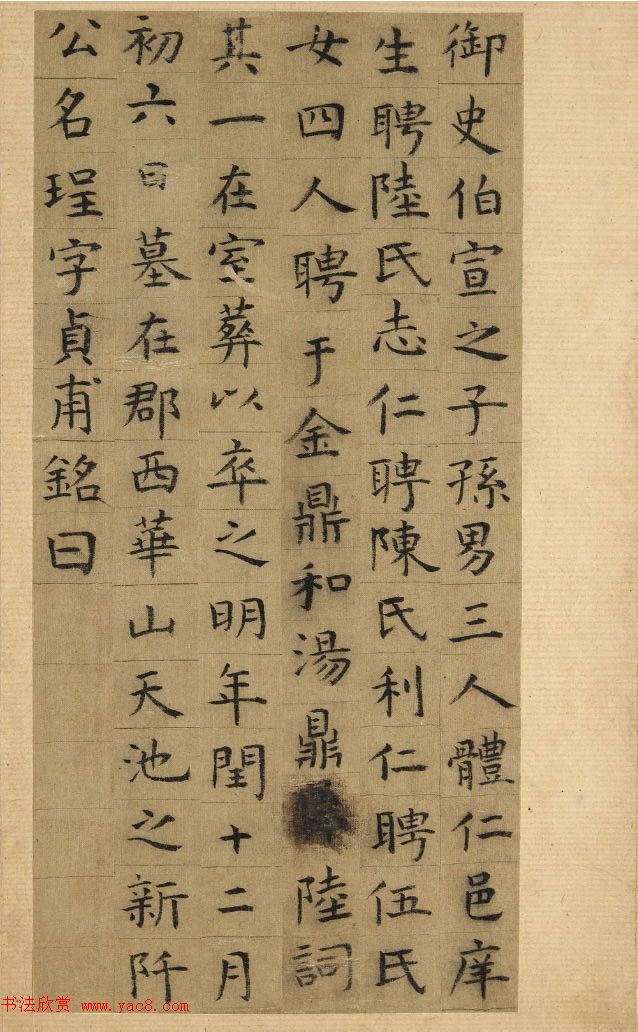 御史伯宣之子孫男三人體仁邑庠
生聘陸氏志仁聘陳氏利仁聘伍氏
女四人聘于金鼎和湯鼎陸詞
其一在室葬以卒之明年閏十二月
初六日墓在郡西華山天池之新阡
公名珵字貞甫銘曰
书法欣赏 www.yac8.com